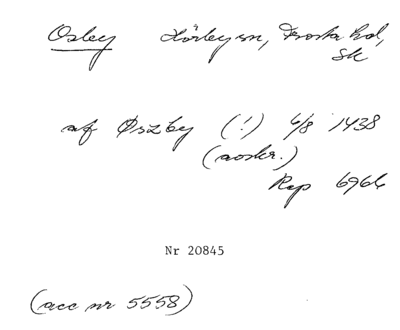 Osby Hörby sn, Frosta hd,
Sk
af Øszby (!) 6/8 1438
(avskr.)
Rep 6966
Nr 20845
(acc nr 5558)